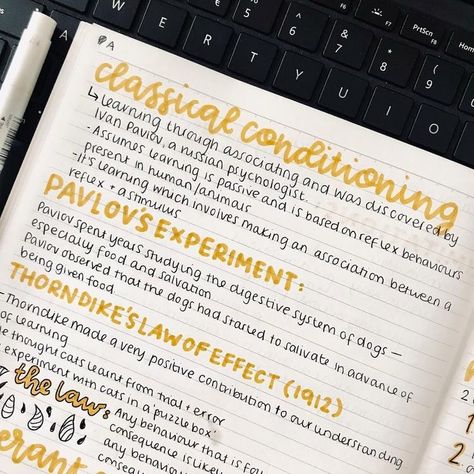 W E R T Y U I O
& 6 7 * 8 9
PrtScn
F8
F9
A
classical conditioning
↳ Learning through associating and was discovered by
Ivan Pavlov, a russian psychologist.
- Assumes learning is passive and is based on reflex behaviours
present in human/animals
- It's learning which involves making an association between a
reflex + a stimulus
PAVLOV'S EXPERIMENT:
Pavlov spent years studying the digestive system of dogs –
especially food and salvation
Pavlov observed that the dogs had started to salivate in advance of
being given food
THORNDIKE'S LAW OF EFFECT (1912)
- Thorndike made a very positive contribution to our understanding
of learning
thought cats learnt from trial + error
experiment with cats in a puzzle box
the law: Any behaviour that is fo
consequence is likely
any behaviou
conseq
2
1
2